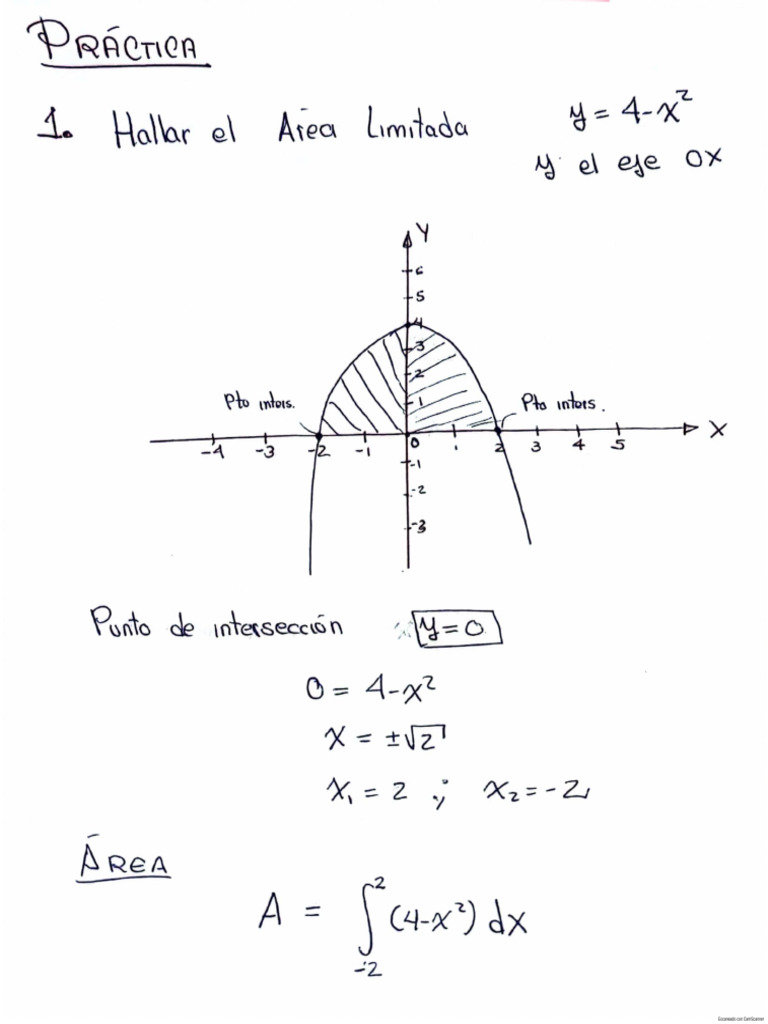 PRÁCTICA
1. Hallar el Área Limitada y = 4-x²
y el eje OX
Y
6
5
4
3
2
1
Pto inters. Pto inters.
-4 -3 -2 -1 0 1 2 3 4 5 X
-1
-2
-3
Punto de intersección y=0
0 = 4-x²
x = ±√2
x₁ = 2 ; x₂ = -2
ÁREA
A = ∫₋₂² (4-x²) dx
Escaneado con CamScanner